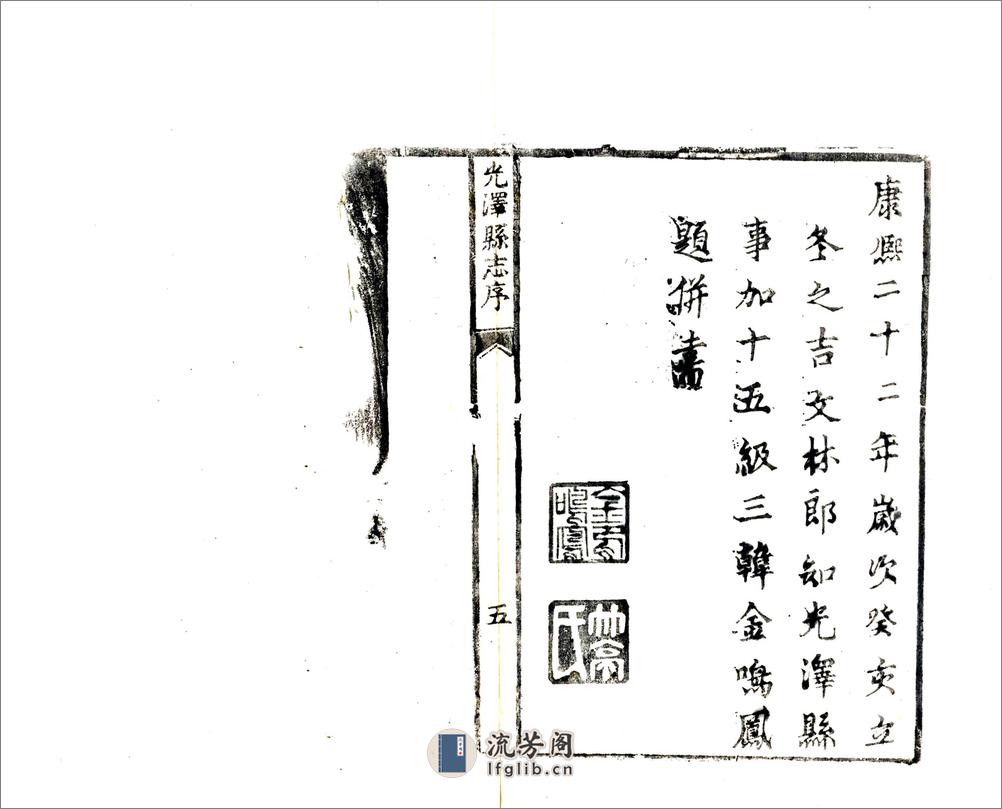 康熙二十二年歲次癸亥立
冬之吉文林郎知光澤縣
事加十五級三韓金鳴鳳
題併書
光澤縣志序
五
流芳阁
lfglib.cn